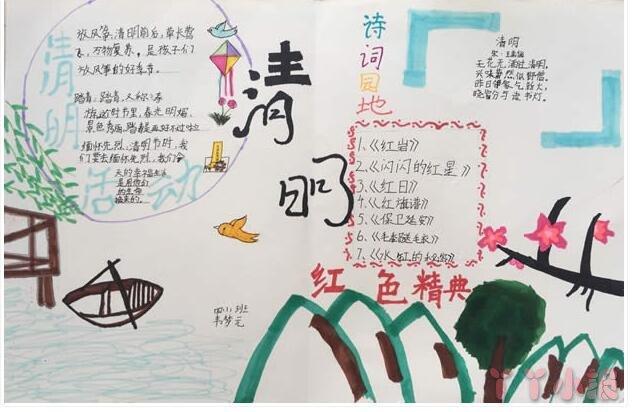 清明活动
放风筝,清明前后,草长莺
飞,万物复苏,是孩子们
放风筝的好季节。
踏青:踏青,又称:春
游,此时节里,春光明媚,
景色秀丽,踏青是再好不过啦
缅怀先烈:清明节时,我
们要去缅怀先烈,我们今
天的幸福生活
是用他们
的生命
换来的。
清明
诗词园地
1、《红岩》
2、《闪闪的红星》
3、《红日》
4、《红旗谱》
5、《保卫延安》
6、《毛泽东
7、《水缸的秘密》
红色精典
清明
宋·王禹偁
无花无酒过清明,
兴味萧然似野僧。
昨日邻家乞新火,
晓窗分与读书灯。
四(1)班
韦梦元
丫丫小报